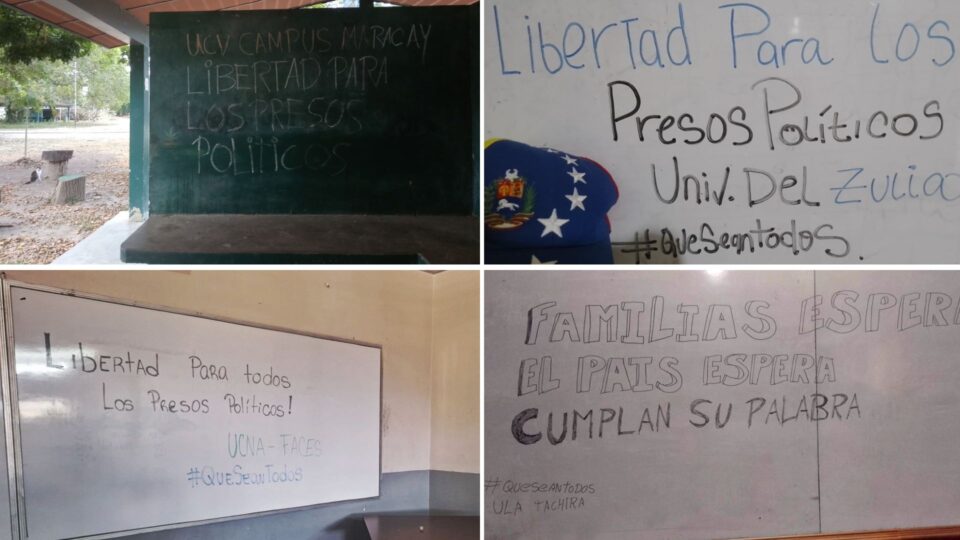 UCV CAMPUS MARACAY
LIBERTAD PARA
LOS PRESOS
POLITICOS
Libertad Para Los
Presos Políticos
Univ. Del Zulia
#QueSeanTodos.
Libertad Para todos
Los Presos Políticos!
UCNA-FACES
#QueSeanTodos
FAMILIAS ESPERA
EL PAIS ESPERA
CUMPLAN SU PALABRA
#QueSeanTodos
ULA TACHIRA